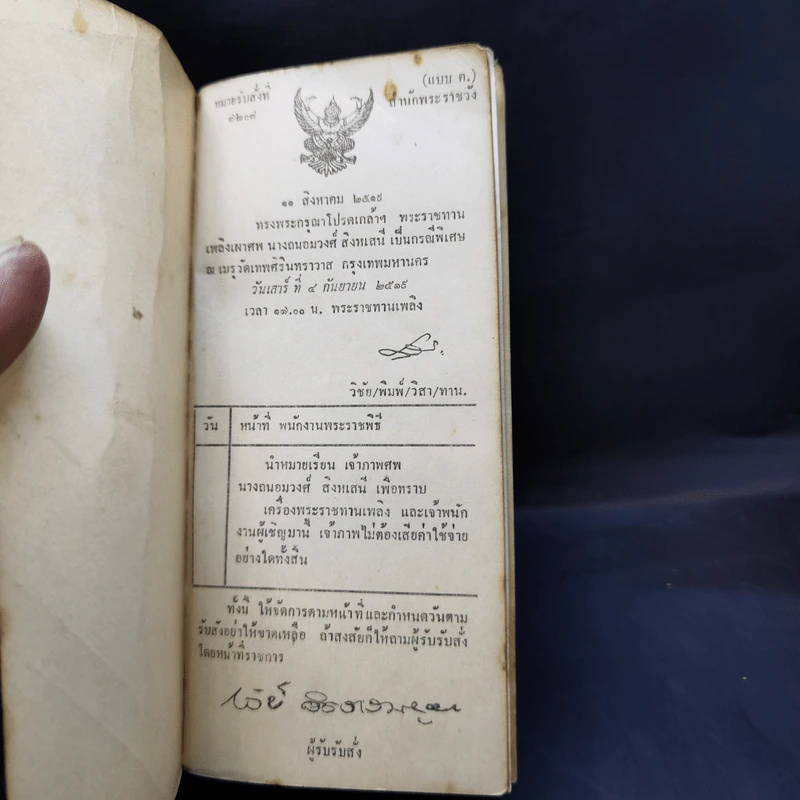 (แบบ ค.)
หมายรับสั่งที่
สำนักพระราชวัง
๗๒๓๗
๑๑ สิงหาคม ๒๕๑๙
ทรงพระกรุณาโปรดเกล้าฯ พระราชทาน
เพลิงเผาศพ นางถนอมวงศ์ สิงหเสนี เป็นกรณีพิเศษ
ณ เมรุวัดเทพศิรินทราวาส กรุงเทพมหานคร
วันเสาร์ ที่ ๔ กันยายน ๒๕๑๙
เวลา ๑๗.๐๐ น. พระราชทานเพลิง
วิชัย/พิมพ์/วิสา/ทาน.
วัน หน้าที่ พนักงานพระราชพิธี
นำหมายเรียน เจ้าภาพศพ
นางถนอมวงศ์ สิงหเสนี เพื่อทราบ
เครื่องพระราชทานเพลิง และเจ้าพนัก
งานผู้เชิญมานี้ เจ้าภาพไม่ต้องเสียค่าใช้จ่าย
อย่างใดทั้งสิ้น
ทั้งนี้ ให้จัดการตามหน้าที่และกำหนดวันตาม
รับสั่งอย่าให้ขาดเหลือ ถ้าสงสัยก็ให้ถามผู้รับรับสั่ง
โดยหน้าที่ราชการ
ผู้รับรับสั่ง